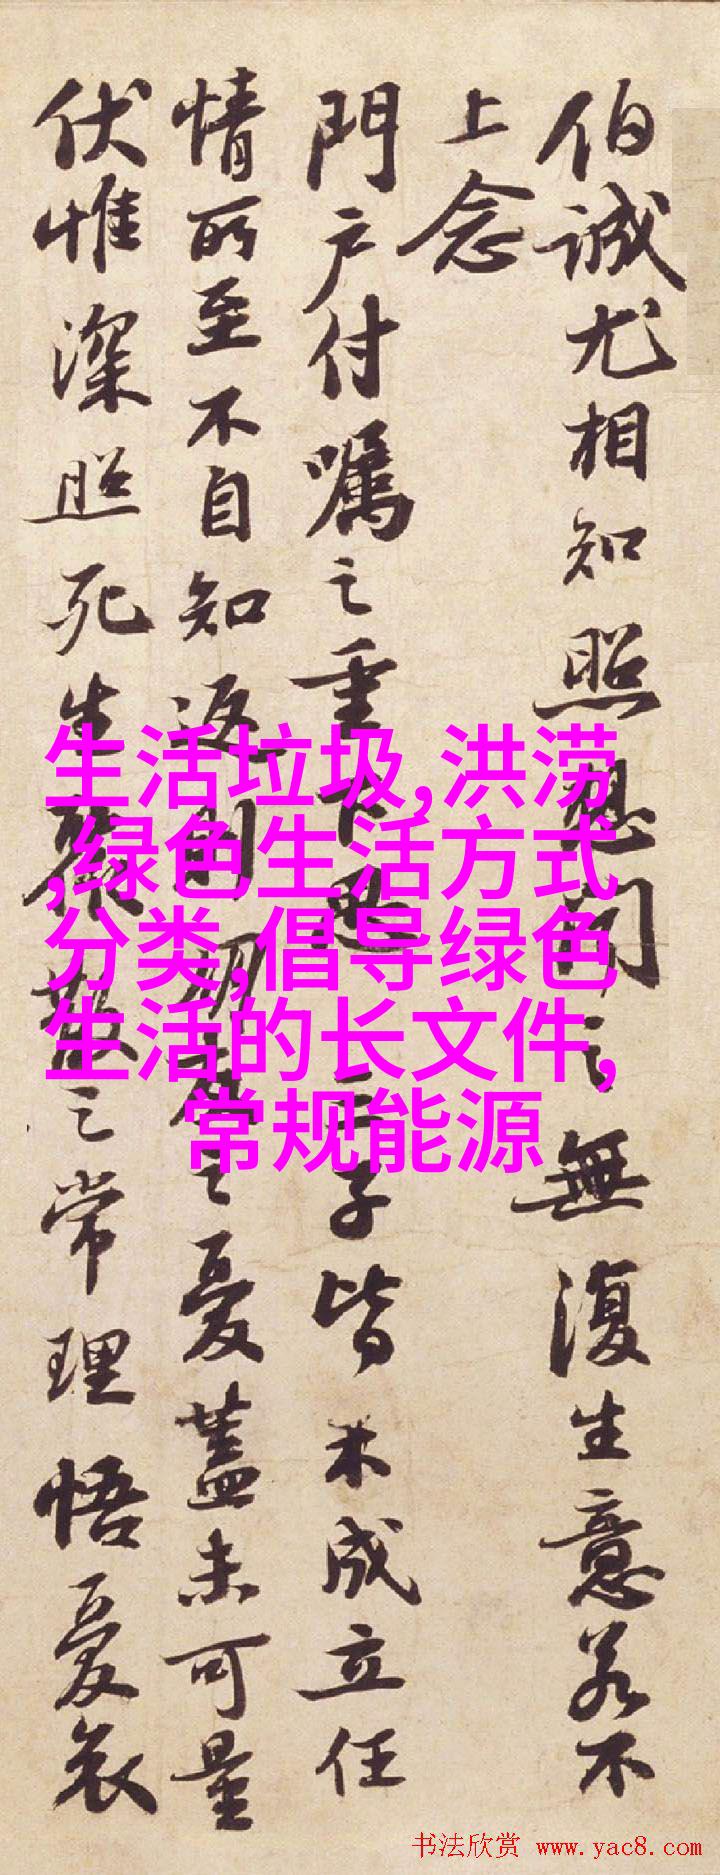 伯誠尤相知照想聞之無復生意若不
上念
門户付囑之重下思三子皆未成立任
情所至不自知返則朝廷之憂蓋未可量
伏惟深照死生聚散之常理悟憂哀
生活垃圾,洪涝
,绿色生活方式
分类,倡导绿色
生活的长文件,
常规能源
书法欣赏 www.yac8.com